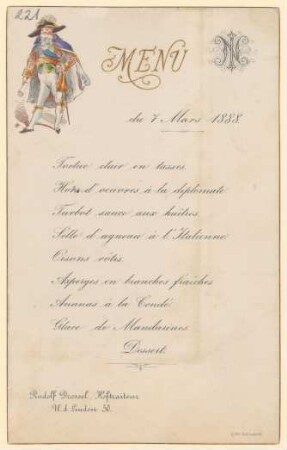 221
MENU
du 7 Mars 1888
Tortue clair en tasses
Hors d'oeuvres à la diplomate
Turbot sauce aux huîtres
Selle d'agneau à l'Italienne
Oisons rôtis
Asperges en branches fraîches
Ananas à la Condé
Glace de Mandarines
Dessert.
Rudolf Dressel, Hoftraiteur
U. d. Linden 50.